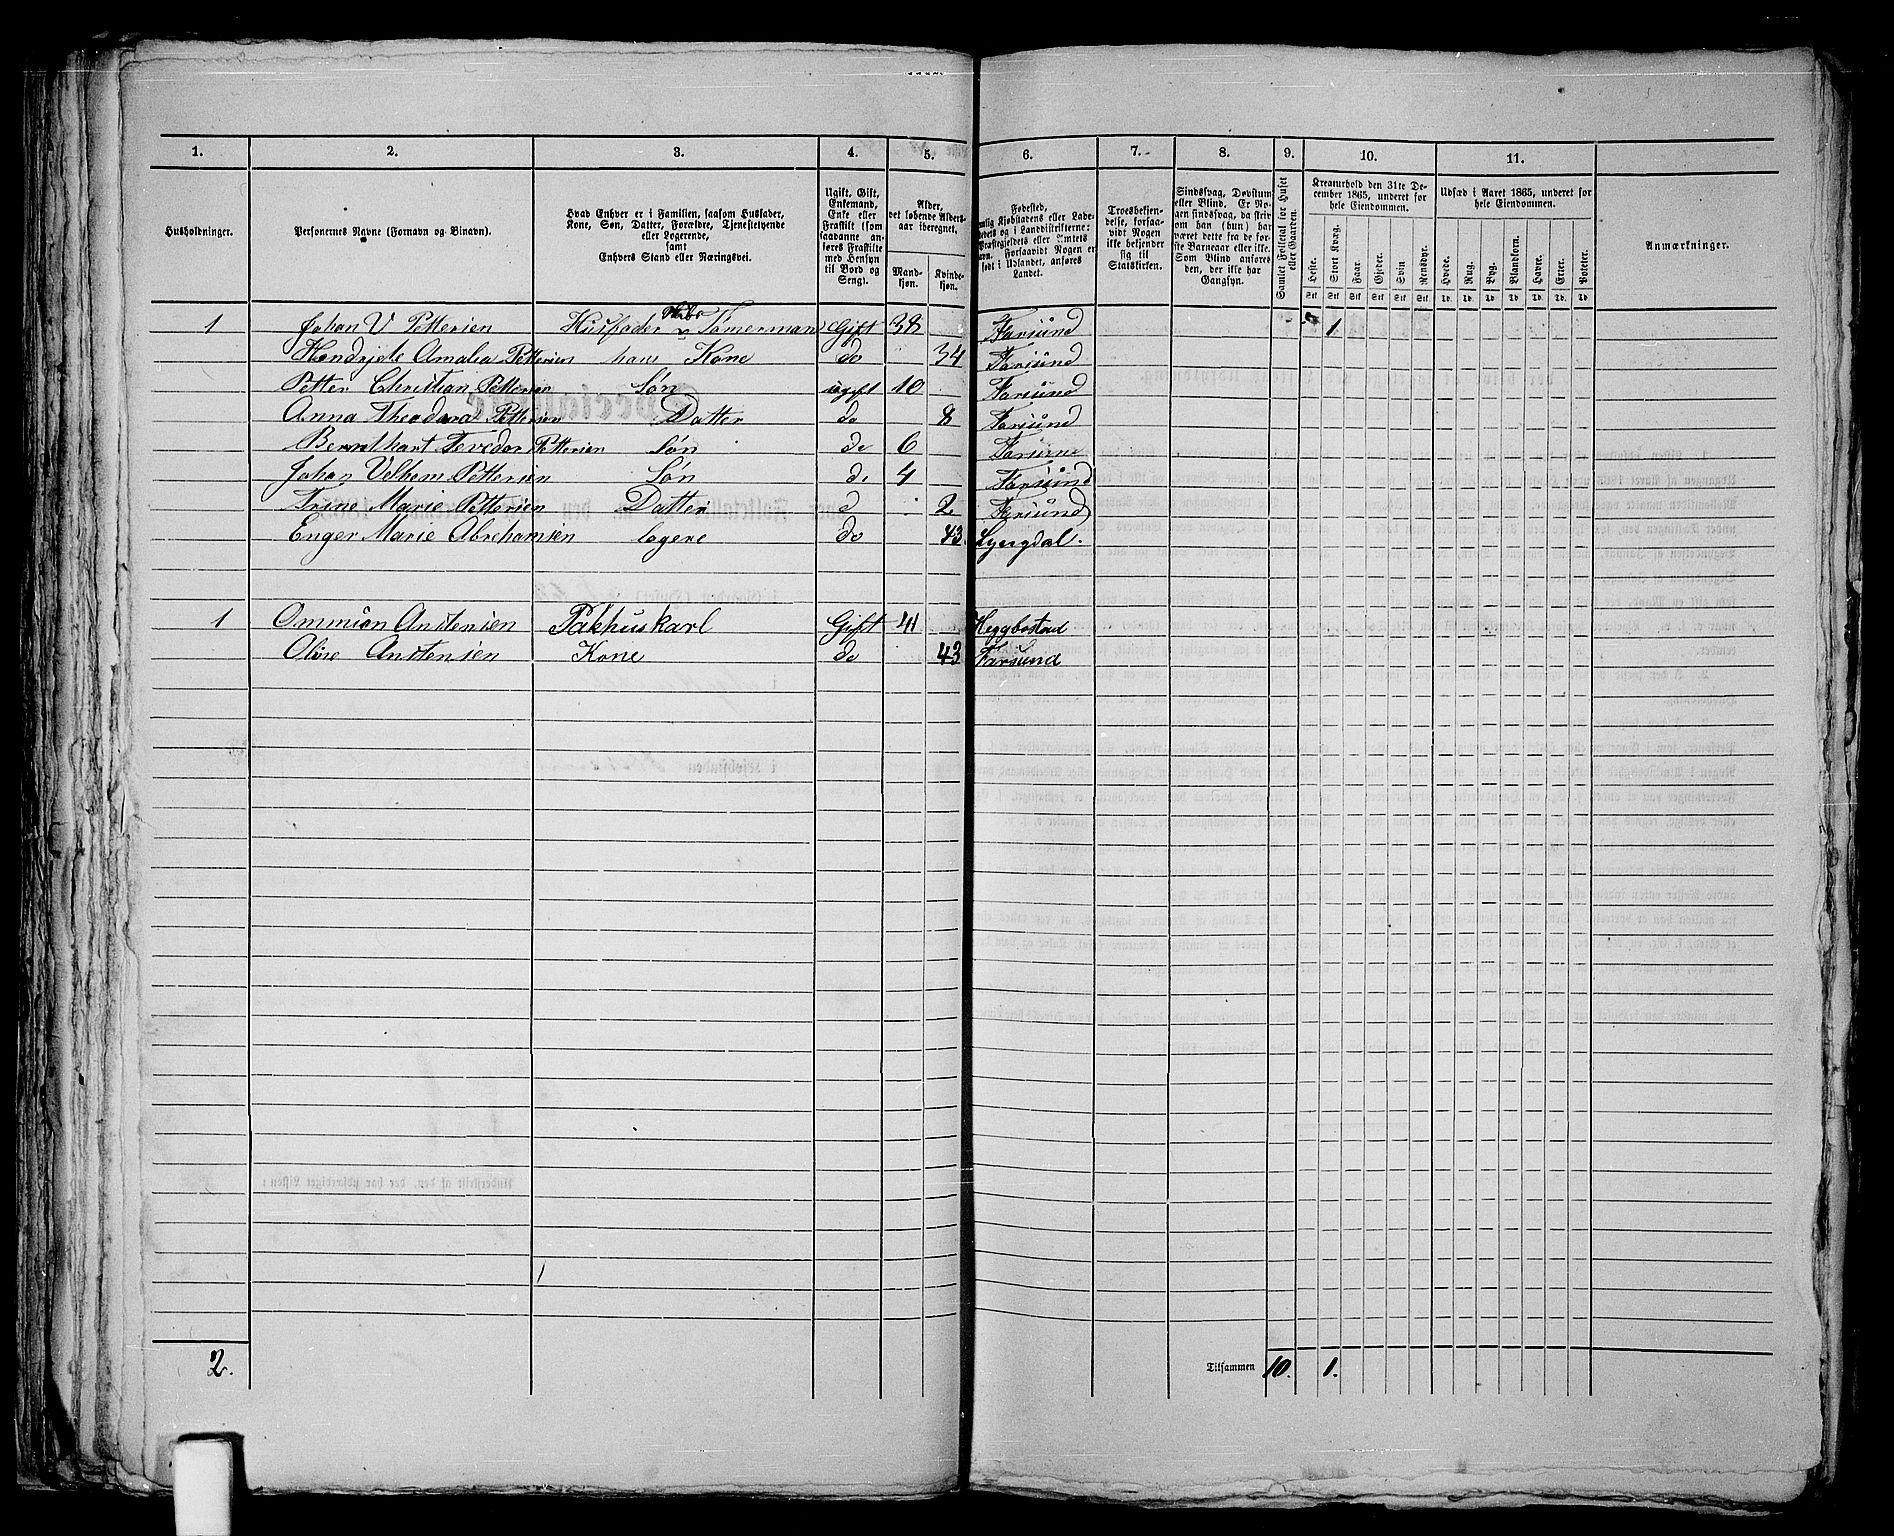 1. 2. 3. 4. 5. 6. 7. 8. 9. 10. 11.
Husholdninger.
Personernes Navne (Fornavn og Binavn).
Hvad Enhver er i Familien, saasom Husfader,
Kone, Søn, Datter, Forældre, Tjenestetyende
eller Logerende,
samt
Enhvers Stand eller Næringsvei.
Ugift, Gift,
Enkemand,
Enke eller
Fraskilt (som
saadanne an-
føres Fraskilte
med Hensyn
til Bord og
Seng).
Alder,
det løbende Alders-
aar iberegnet.
Mand-
kjøn.
Kvinde-
kjøn.
Fødested,
Kjøbstadens eller Lade-
og i Landdistrikterne:
Præstegjeldets eller Amtets
Navn. Forsaavidt Nogen er
født i Udlandet, anføres
Landet.
Troesbekjen-
delse, forsaa-
vidt Nogen
ikke bekjender
sig til
Statskirken.
Sindssvag, Døvstum
eller Blind. Er No-
gen sindssvag, da skriv
om han (hun) har
været dette fra de før-
ste Barneaar eller ikke.
Som Blind anføres
den, der ikke har
Gangsyn.
Samlet Folketal for Huset
eller Gaarden.
Kreaturhold den 31te De-
cember 1865, underet for
hele Eiendommen.
Heste. Stort Kvæg. Faar. Gjeder. Svin Rensdyr.
Stk Stk Stk Stk Stk Stk
Udsæd i Aaret 1865, underet for
hele Eiendommen.
Hvede. Rug. Byg. Blandkorn. Havre. Erter. Poteter.
Td. Td. Td. Td. Td. Td. Td.
Anmærkninger.
1 Johan V Pettersen Husfader Tømermand Gift 38 Farsund 1
Hendrjete Amalia Pettersen hans Kone do 34 Farsund
Petter Christian Pettersen Søn ugift 10 Farsund
Anna Theodora Pettersen Datter do 8 Farsund
Bernthart Tevedor Pettersen Søn do 6
Johan Velhem Pettersen Søn do 4 Farsund
Trine Marie Pettersen Datter d 2 Farsund
Enger Marie Abrehamsen logere do 43 Lyngdal.
1 Ommun Anstensen Pakhuskarl Gift 41 Heggbostad
Olive Anstensen Kone do 43 Farsund
2. Tilsammen 10. 1.